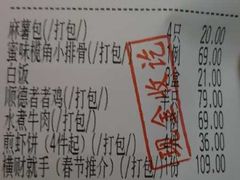 麻薯包(/打包/) 4只 20.00
蜜味榄角小排骨(/打包/) 例 69.00
白饭 21.00
顺德煮者鸡(/打包/) 79.00
水煮牛肉(/打包/) 69.00
煎虾饼(4件起)(/打包/) 36.00
横财就手(春节推介)(/打包/)份 109.00
现金收讫